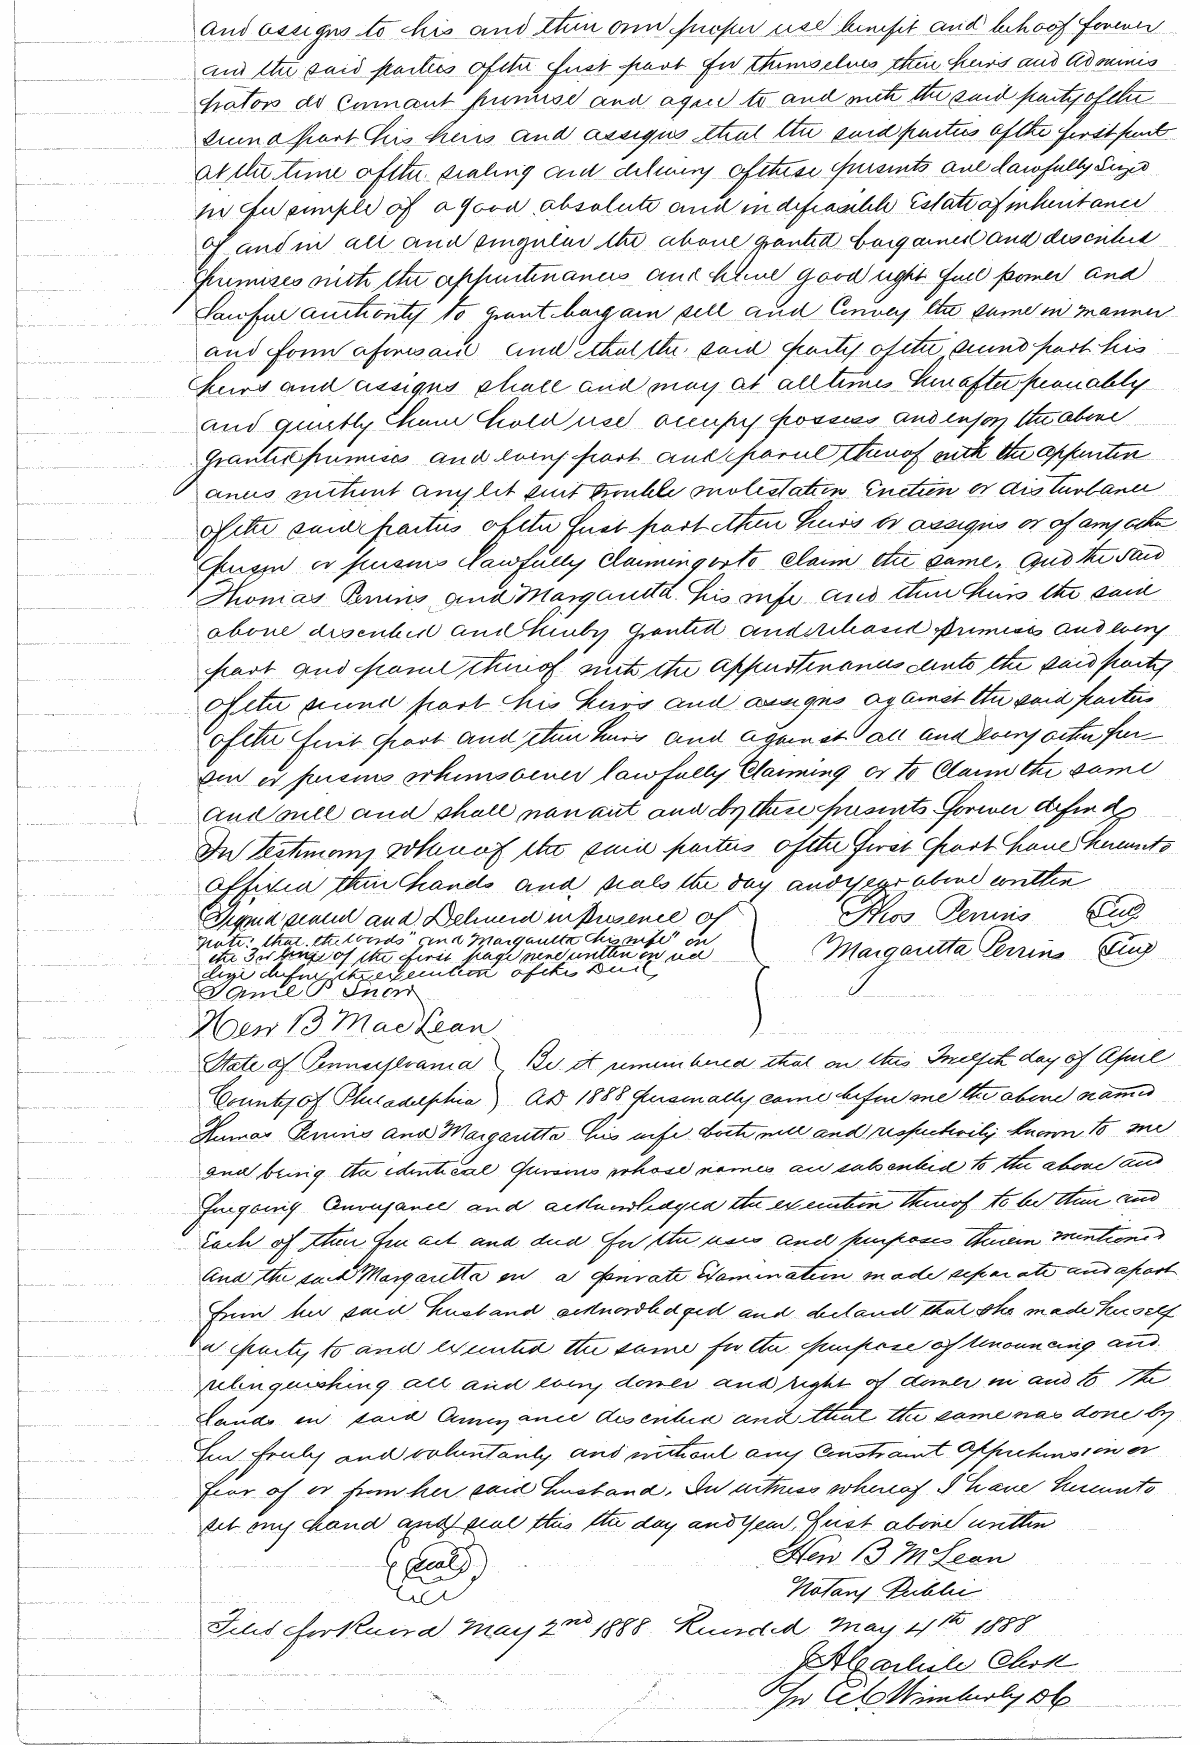 and assigns to his and their own proper use benefit and behoof forever
and the said parties of the first part for themselves their heirs and Adminis
trators do covenant promise and agree to and with the said party of the
second part his heirs and assigns that the said parties of the first part
at the time of the sealing and delivery of these presents are lawfully Seized
in fee simple of a good absolute and indefeasible Estate of inheritance
of and in all and singular the above granted bargained and described
premises with the appurtenances and have good right full power and
Lawful authority to grant bargain sell and Convey the same in manner
and form aforesaid and that the said party of the second part his
heirs and assigns shall and may at all times hereafter peaceably
and quietly have hold use occupy possess and enjoy the above
granted premises and every part and parcel thereof with the appurten
ances without any let suit trouble molestation Eviction or disturbance
of the said parties of the first part their heirs or assigns or of any other
person or persons lawfully claiming or to claim the same. And the said
Thomas Perrins and Margaretta his wife and their heirs the said
above described and hereby granted and released premises and every
part and parcel thereof with the appurtenances unto the said party
of the second part his heirs and assigns against the said parties
of the first part and their heirs and against all and every other per
son or persons whomsoever lawfully Claiming or to Claim the same
and will and shall warrant and by these presents forever defend
In testimony whereof the said parties of the first part have hereunto
affixed their hands and seals the day and year above written
Signed sealed and Delivered in Presence of Thos Perrins Seal
note: that the words "and Margaretta his wife" on Margaretta Perrins Seal
the 3rd line of the first page were written on
before the execution of this Deed
Daniel P Snow
Hew B MacLean
State of Pennsylvania ) Be it remembered that on this Twelfth day of April
County of Philadelphia ) AD 1888 personally came before me the above named
Thomas Perrins and Margaretta his wife both well and respectively known to me
and being the identical persons whose names are subscribed to the above and
foregoing Conveyance and acknowledged the execution thereof to be their and
Each of their free act and deed for the uses and purposes therein mentioned
And the said Margaretta on a private Examination made separate and apart
from her said husband acknowledged and declared that she made herself
a party to and executed the same for the purpose of renouncing and
relinquishing all and every dower and right of dower in and to the
Lands in said Conveyance described and that the same was done by
her freely and voluntarily and without any Constraint Apprehension or
fear of or from her said husband. In witness whereof I have hereunto
set my hand and seal this the day and year first above written
(Seal) Hew B McLean
Notary Public
Filed for Record May 2nd 1888 Recorded May 4th 1888
J A Carlisle Clerk
Per C C Wimberly DC